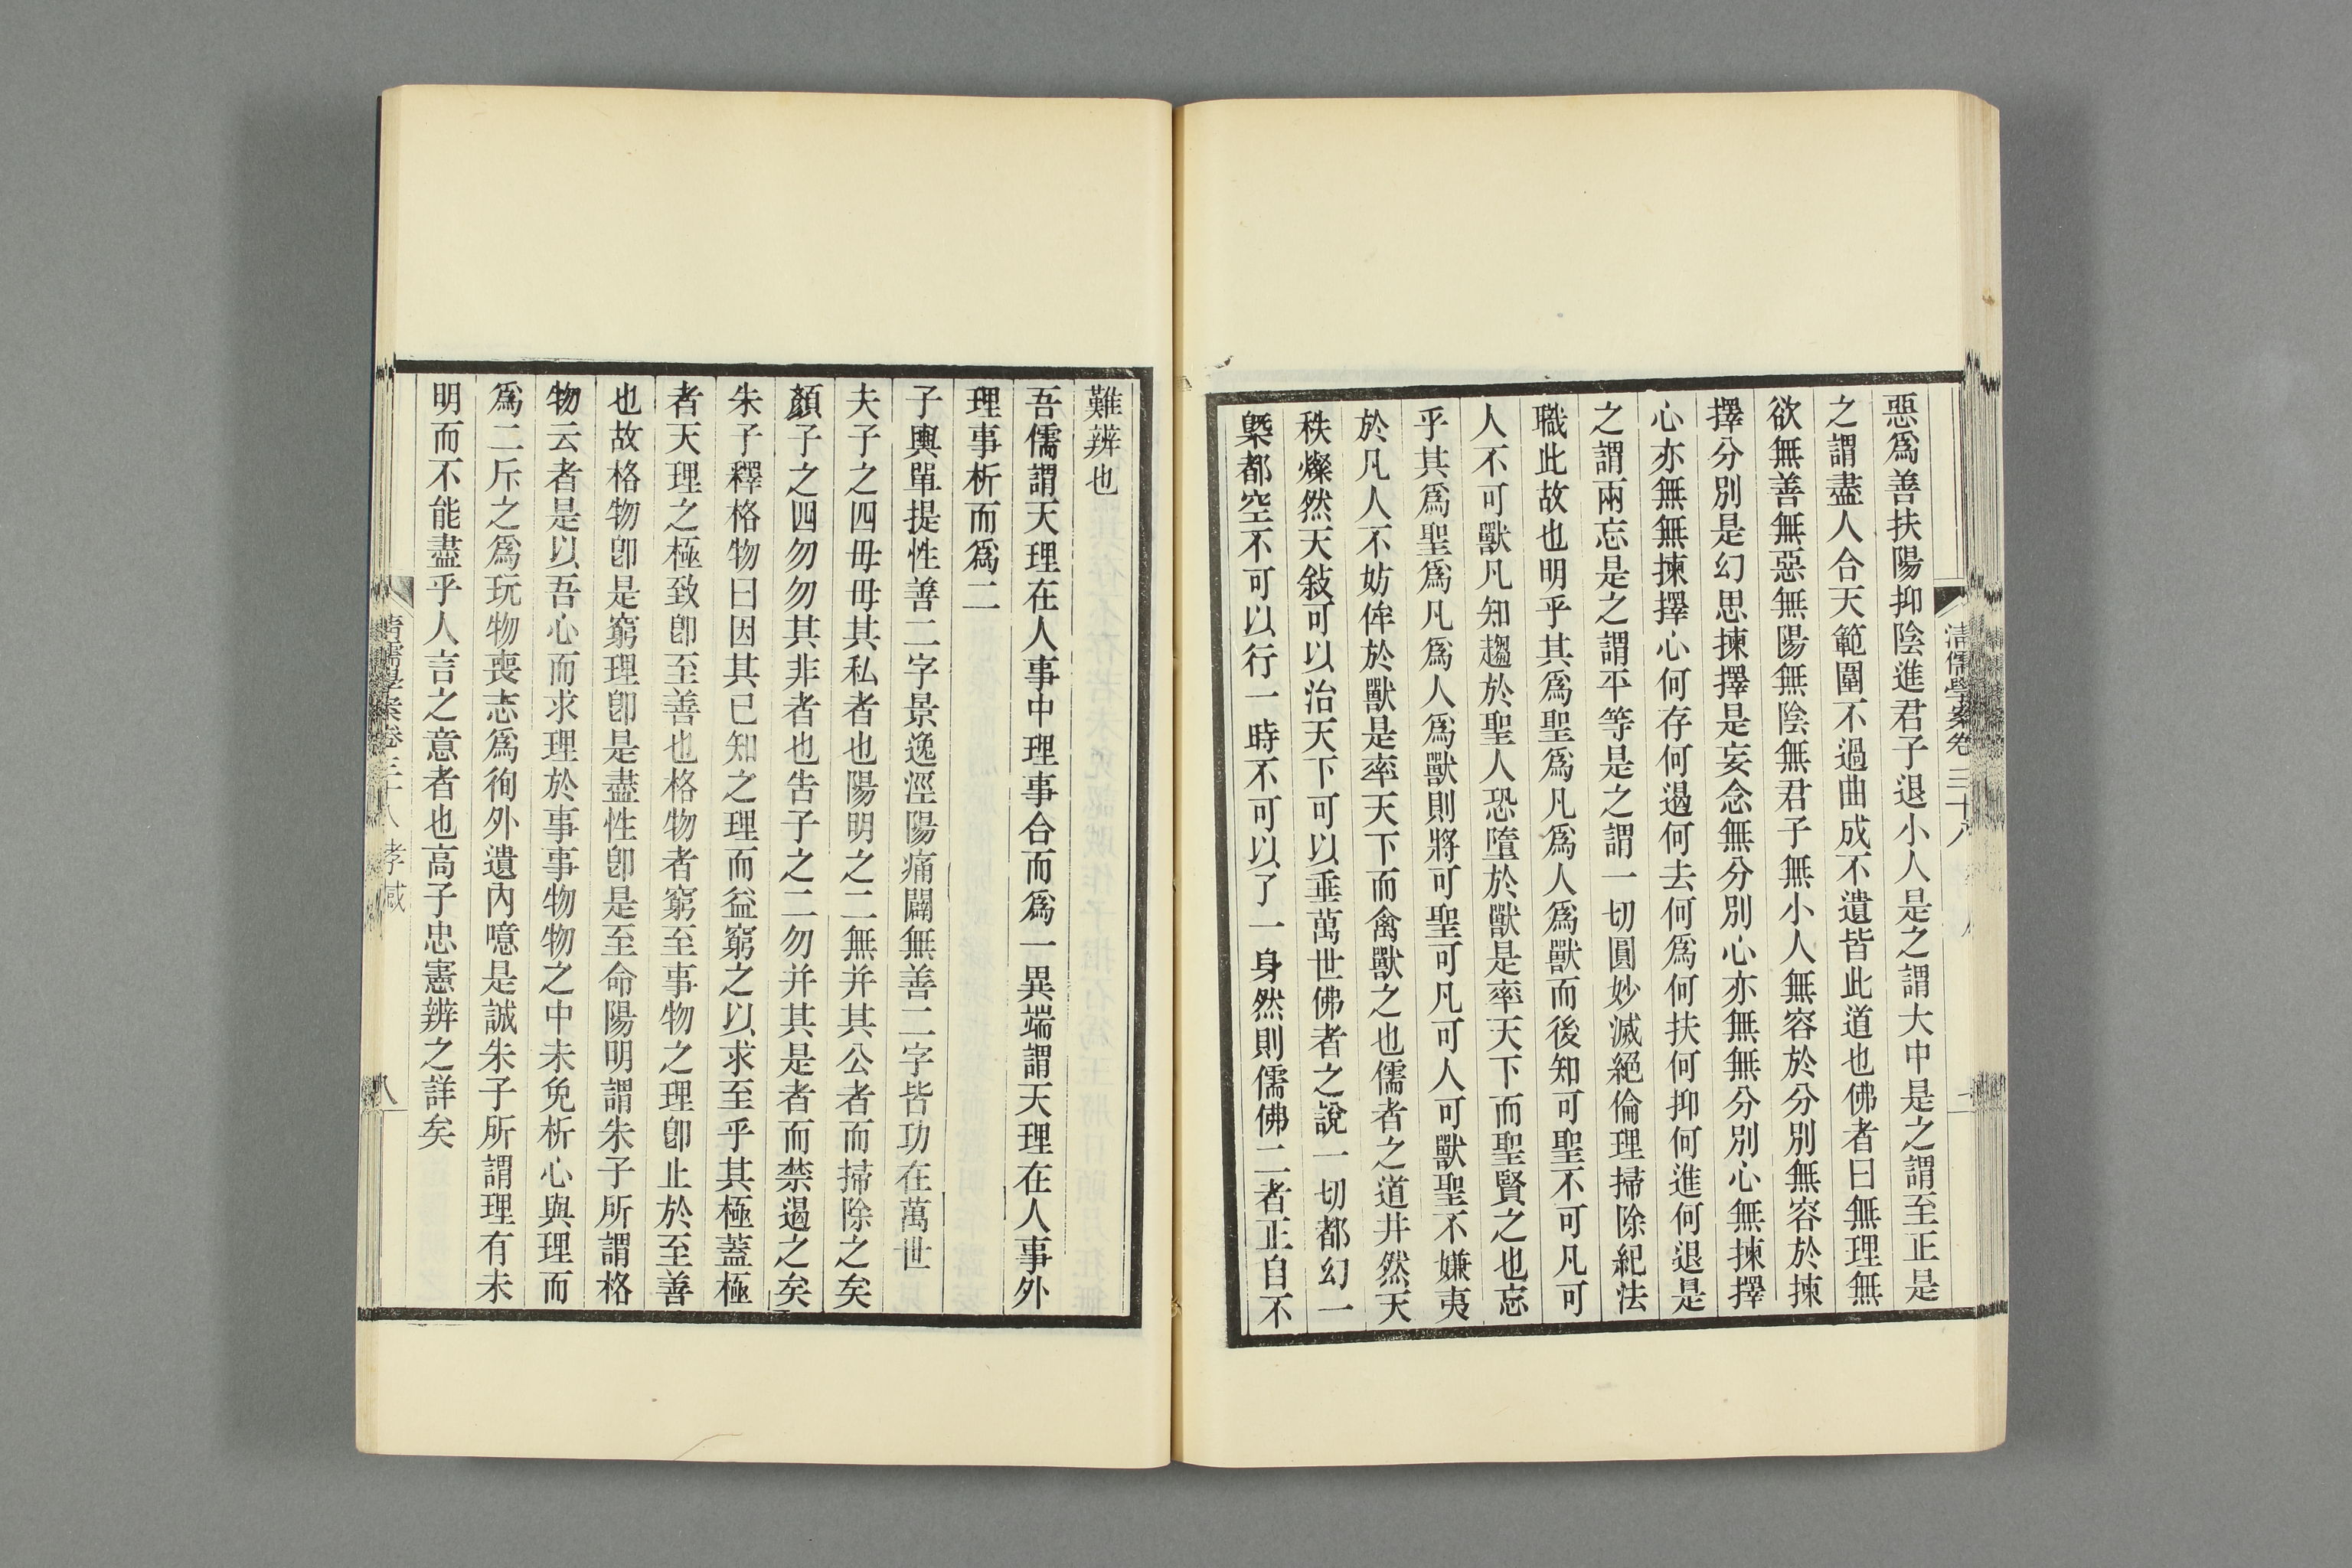 清儒學案卷三十八
惡爲善扶陽抑陰進君子退小人是之謂大中是之謂至正是
之謂盡人合天範圍不過曲成不遺皆此道也佛者曰無理無
欲無善無惡無陽無陰無君子無小人無容於分別無容於揀
擇分別是幻思揀擇是妄念無分別心亦無無分別心無揀擇
心亦無無揀擇心何存何過何去何爲何扶何抑何進何退是
之謂兩忘是之謂平等是之謂一切圓妙滅絕倫理掃除紀法
職此故也明乎其爲聖爲凡爲人爲獸而後知可聖不可凡可
人不可獸凡知趨於聖人恐墮於獸是率天下而聖賢之也忘
乎其爲聖爲凡爲人爲獸則將可聖可凡可人可獸聖不嫌夷
於凡人不妨侔於獸是率天下而禽獸之也儒者之道井然天
秩燦然天敍可以治天下可以垂萬世佛者之說一切都幻一
槩都空不可以行一時不可以了一身然則儒佛二者正自不
難辨也
吾儒謂天理在人事中理事合而爲一異端謂天理在人事外
理事析而爲二
子輿單提性善二字景逸涇陽痛闢無善二字皆功在萬世
夫子之四毋毋其私者也陽明之二無并其公者而掃除之矣
顏子之四勿勿其非者也告子之二勿并其是者而禁遏之矣
朱子釋格物曰因其已知之理而益窮之以求至乎其極蓋極
者天理之極致卽至善也格物者窮至事物之理卽止於至善
也故格物卽是窮理卽是盡性卽是至命陽明謂朱子所謂格
物云者是以吾心而求理於事事物物之中未免析心與理而
爲二斥之爲玩物喪志爲徇外遺內噫是誠朱子所謂理有未
明而不能盡乎人言之意者也高子忠憲辨之詳矣
清儒學案卷三十八 孝感
八